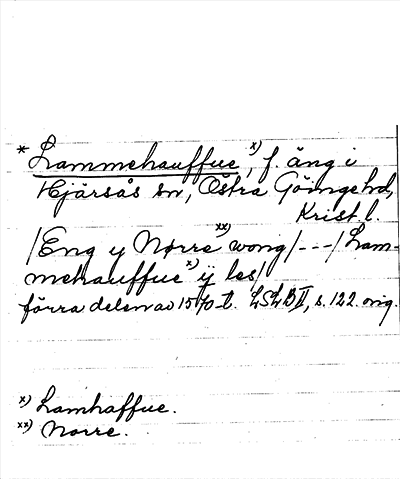 * Lammehauffue, x) f. äng i
Hjärsås sn, Östra Göinge hd,
Krist. l.
/Eng y Nørre xx) wong/ - - - /Lam-
mehauffue x) ij les/
förra delen av 1570-t. LSLB II, s. 122. orig.
x) Lamhaffue.
xx) Norre.